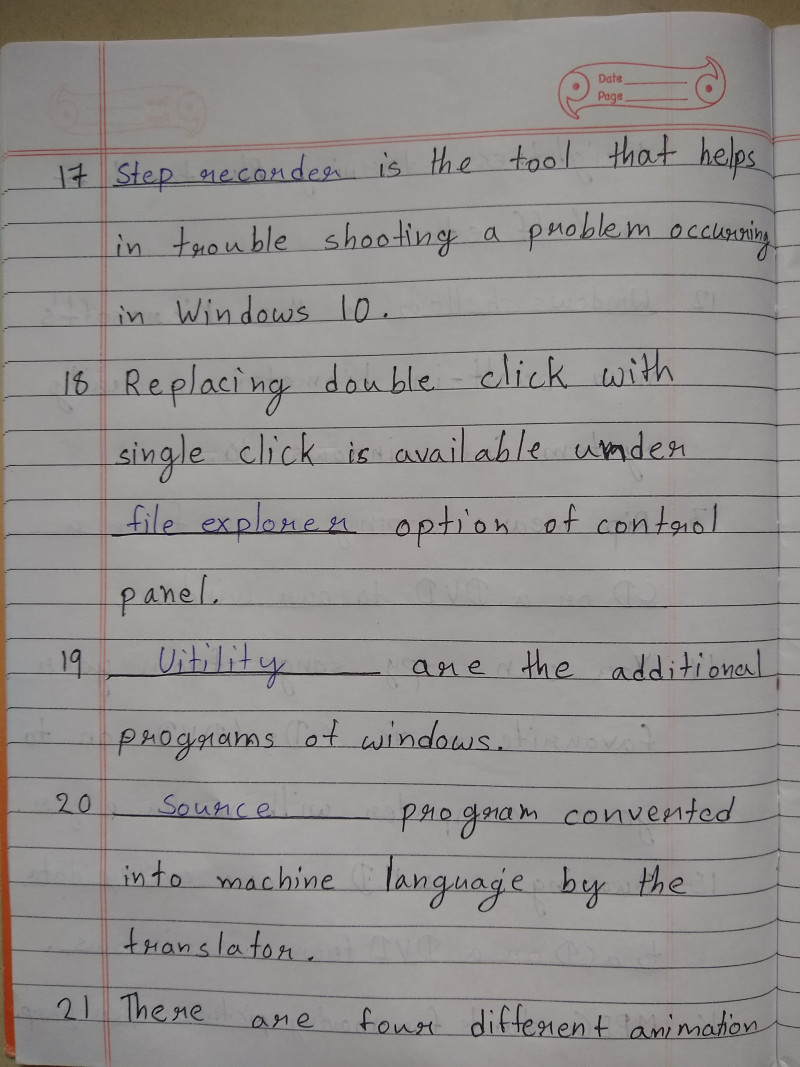 Date
Page
17 Step recorder is the tool that helps
in trouble shooting a problem occurring
in Windows 10.
18 Replacing double - click with
single click is available under
file explorer option of control
panel.
19 Uitility are the additional
programs of windows.
20 Source program converted
into machine language by the
translator.
21 There are four different animation